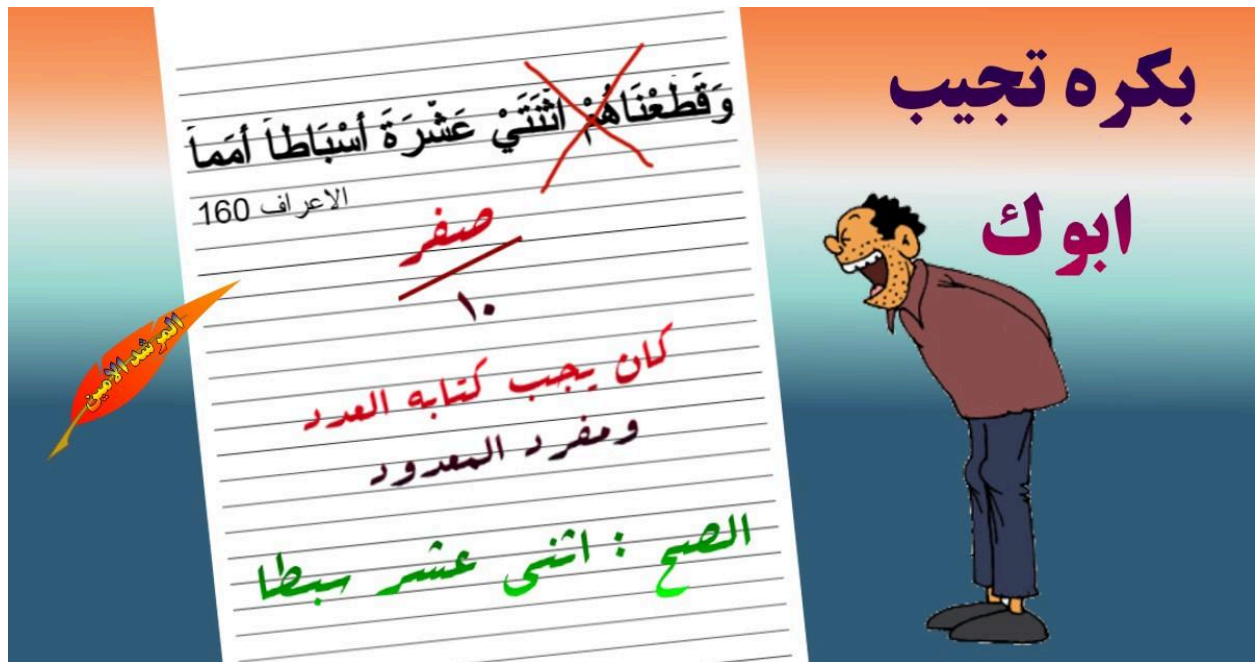 بكره تجيب
ابوك
وَقَطَعْنَاهُمْ اثْنَتَيْ عَشْرَةَ أَسْبَاطاً أُمَماً
الاعراف 160
صفر
١٠
كان يجب كتابه العدد
ومفرد المعدود
الصح : اثنى عشر سبطا
المرشد الامين